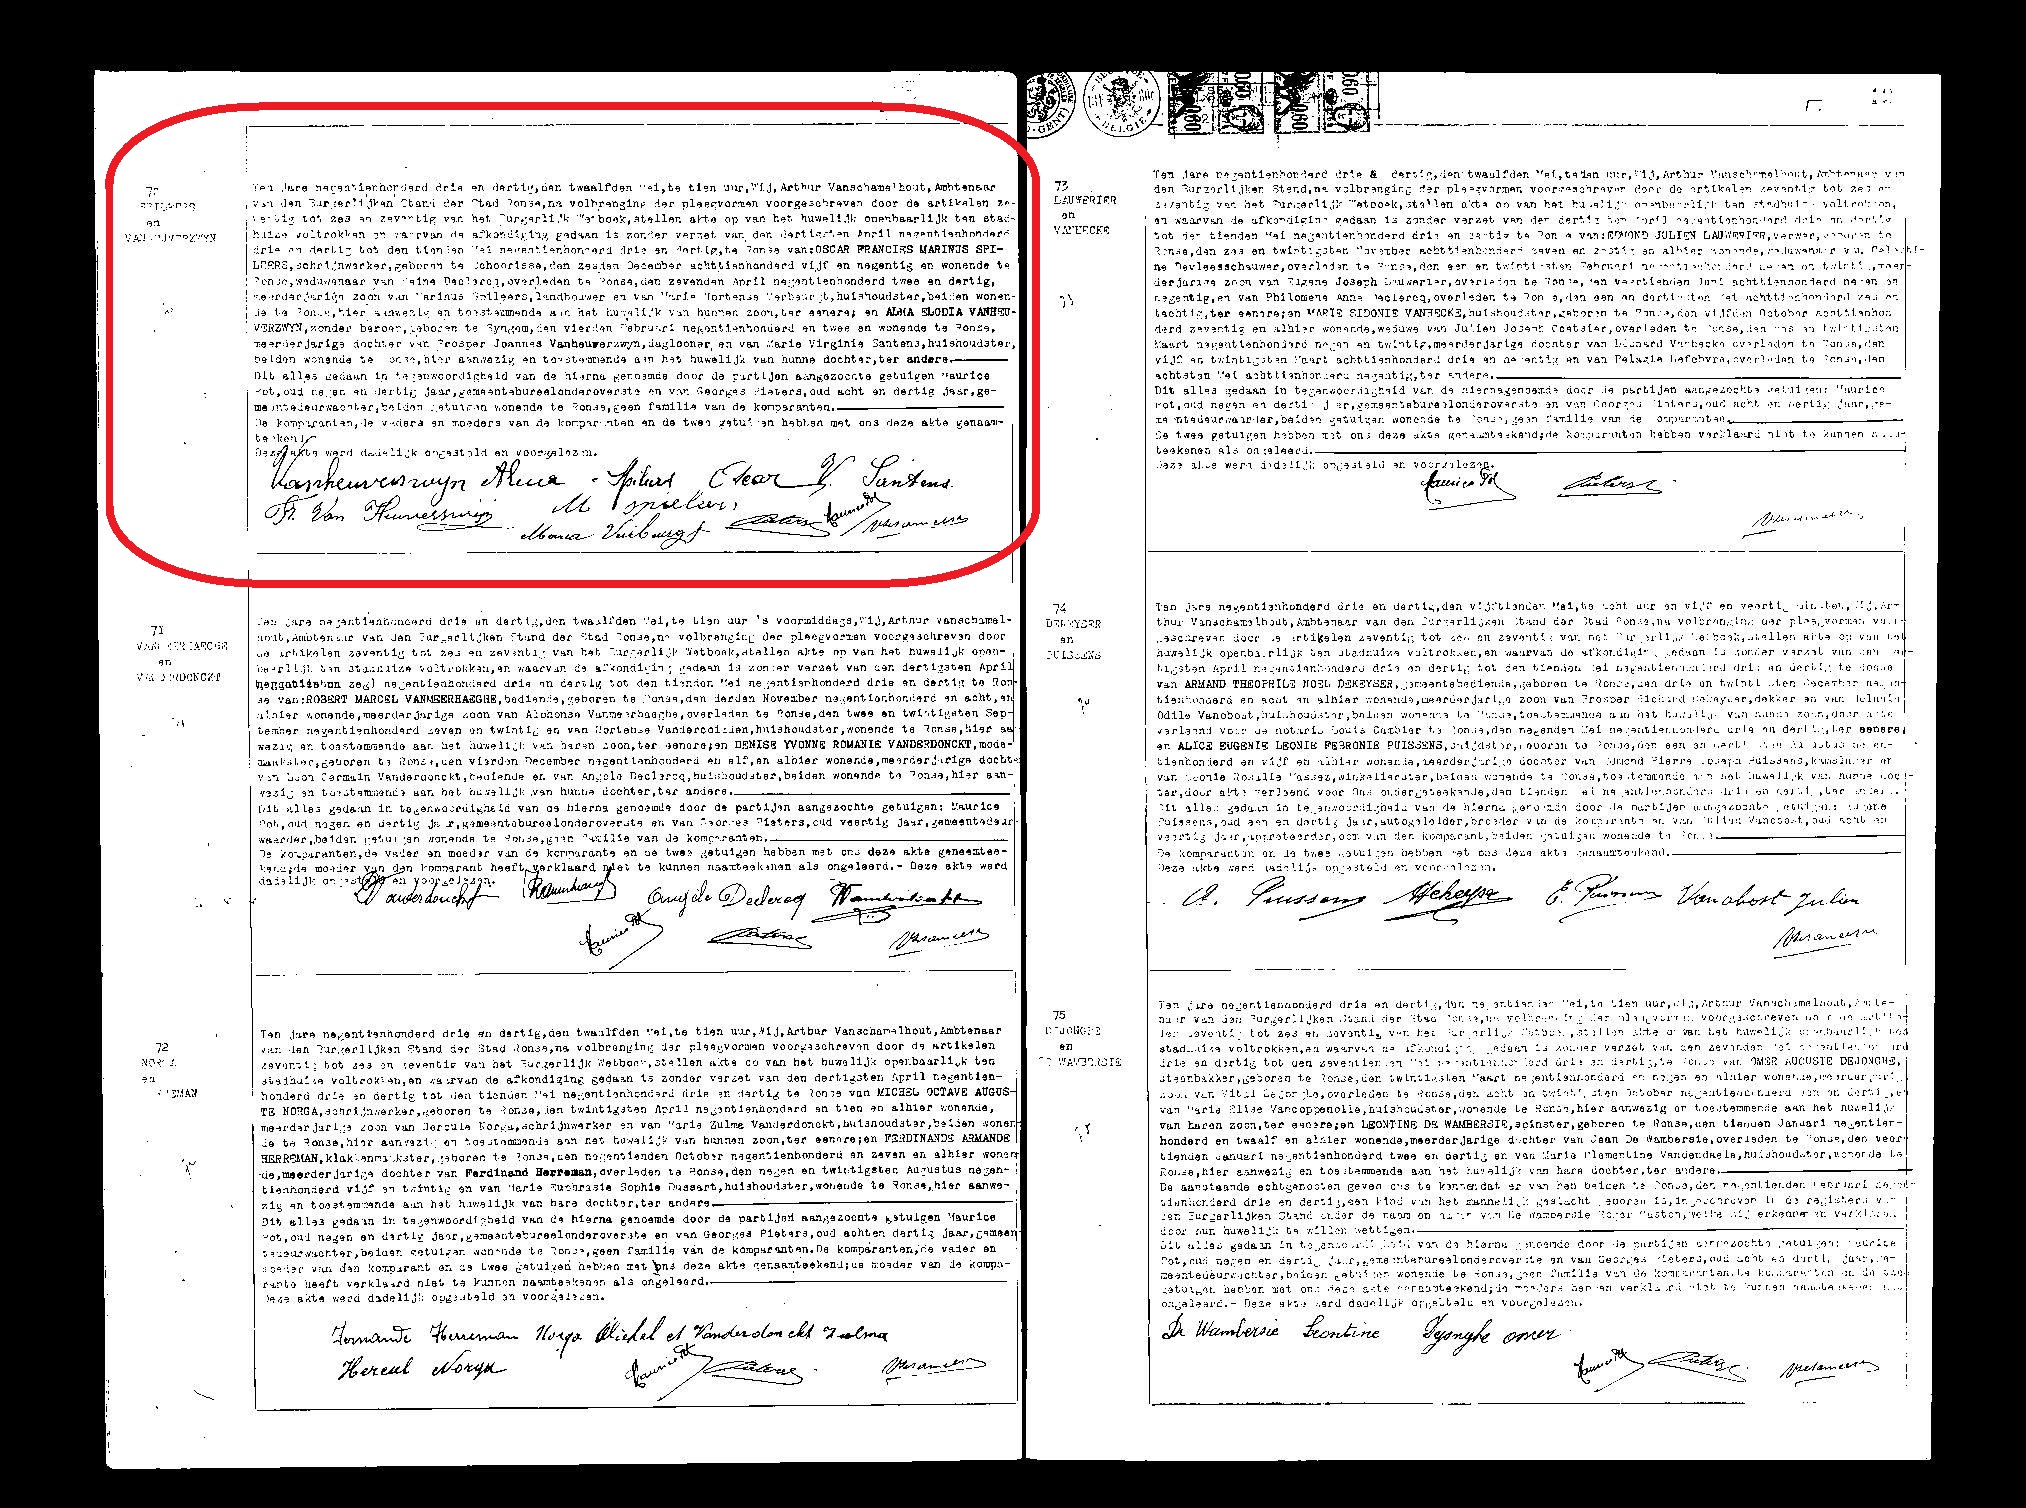 Ten jare negentienhonderd drie en dertig,den twaalfden Mei,te tien uur,Wij,Arthur Vanschamelhout,Ambtenaar
van den Burgerlijken Stand der Stad Ronse,na volbrenging der pleegvormen voorgeschreven door de artikelen ze-
ventig tot zes en zeventig van het Burgerlijk Wetboek,stellen akte op van het huwelijk openbaarlijk ten stad-
huize voltrokken en waarvan de afkondiging gedaan is zonder verzet van den dertigsten April negentienhonderd
drie en dertig tot den tienden Mei negentienhonderd drie en dertig,te Ronse van:OSCAR FRANCIES MARINUS SPI-
LEERS,schrijnwerker,geboren te Schoorisse,den zesden December achttienhonderd vijf en negentig en wonende te
Ronse,weduwenaar van Declercq,overleden te Ronse,den zevenden April negentienhonderd twee en dertig,
meerderjarige zoon van Marinus Spileers,landbouwer en van Marie Hortense Verbeurgt,huishoudster,beiden wonen-
de te Ronse,hier aanwezig en toestemmende aan het huwelijk van hunnen zoon,ter eenere; en ALMA ELODIA VANHEU-
VERZWYN,zonder beroep,geboren te Eyngem,den vierden Februari negentienhonderd en twee en wonende te Ronse,
meerderjarige dochter van Prosper Joannes Vanheuverzwyn,daglooner en van Marie Virginie Santens,huishoudster,
beiden wonende te Ronse,hier aanwezig en toestemmende aan het huwelijk van hunne dochter,ter andere.
Dit alles gedaan in tegenwoordigheid van de hierna genoemde door de partijen aangezochte getuigen Maurice
Pot,oud negen en dertig jaar,gemeentebureelonderoverste en van Georges Pieters,oud acht en dertig jaar,ge-
meentedeurwachter,beiden getuigen wonende te Ronse,geen familie van de komparanten.
De komparanten,de vaders en moeders van de komparanten en de twee getuigen hebben met ons deze akte genaam-
teekend.
Deze akte werd dadelijk opgesteld en voorgelezen.
Vanheuverswyn Alma Spileers Oscar V. Santens
Van Heuverswijn M Spileers
Maria Verbeurgt Pieters Maurice Pot
71
VANMEERHAEGHE
en
VANDERDONCKT
Ten jare negentienhonderd drie en dertig,den twaalfden Mei,te tien uur 's voormiddags,Wij,Arthur Vanschamel-
hout,Ambtenaar van den Burgerlijken Stand der Stad Ronse,na volbrenging der pleegvormen voorgeschreven door
de artikelen zeventig tot zes en zeventig van het Burgerlijk Wetboek,stellen akte op van het huwelijk open-
baarlijk ten stadhuize voltrokken,en waarvan de afkondiging gedaan is zonder verzet van den dertigsten April
negentienhonderd drie en dertig tot den tienden Mei negentienhonderd drie en dertig te Ron-
se van:ROBERT MARCEL VANMEERHAEGHE,bediende,geboren te Ronse,den derden November negentienhonderd en acht,en
alhier wonende,meerderjarige zoon van Alphonse Vanmeerhaeghe,overleden te Ronse,den twee en twintigsten Sep-
tember negentienhonderd zeven en twintig en van Hortense huishoudster,wonende te Ronse,hier aan-
wezig en toestemmende aan het huwelijk van haren zoon,ter eenere; en DENISE YVONNE ROMANIE VANDERDONCKT,mode-
maakster,geboren te Ronse,den vierden December negentienhonderd en elf,en alhier wonende,meerderjarige dochter
van Leon Germain Vanderdonckt,bediende en van Angele Declercq,huishoudster,beiden wonende te Ronse,hier aan-
wezig en toestemmende aan het huwelijk van hunne dochter,ter andere.
Dit alles gedaan in tegenwoordigheid van de hierna genoemde door de partijen aangezochte getuigen: Maurice
Pot,oud negen en dertig jaar,gemeentebureelonderoverste en van Georges Pieters,oud veertig jaar,gemeentedeur-
waarder,beiden getuigen wonende te Ronse,geen familie van de komparanten.
De komparanten,de vader en moeder van de komparante en de twee getuigen hebben met ons deze akte genaamtee-
kend;de moeder van den komparant heeft verklaard niet te kunnen naamteekenen als ongeleerd.- Deze akte werd
dadelijk opgesteld en voorgelezen.
Vanderdonckt Angèle Declercq
Maurice Pot Pieters
72
NORGA
en
HERREMAN
Ten jare negentienhonderd drie en dertig,den twaalfden Mei,te tien uur,Wij,Arthur Vanschamelhout,Ambtenaar
van den Burgerlijken Stand der Stad Ronse,na volbrenging der pleegvormen voorgeschreven door de artikelen
zeventig tot zes en zeventig van het Burgerlijk Wetboek,stellen akte op van het huwelijk openbaarlijk ten
stadhuize voltrokken,en waarvan de afkondiging gedaan is zonder verzet van den dertigsten April negentien-
honderd drie en dertig tot den tienden Mei negentienhonderd drie en dertig te Ronse van MICHEL OCTAVE AUGUS-
TE NORGA,schrijnwerker,geboren te Ronse,den twintigsten April negentienhonderd en tien en alhier wonende,
meerderjarige zoon van Hercule Norga,schrijnwerker en van Marie Zulma Vanderdonckt,huishoudster,beiden wonen-
de te Ronse,hier aanwezig en toestemmende aan het huwelijk van hunnen zoon,ter eenere;en FERDINANDE ARMANDE
HERREMAN,klakkenmaakster,geboren te Ronse,den negentienden October negentienhonderd en zeven en alhier wonen-
de,meerderjarige dochter van Ferdinand Herreman,overleden te Ronse,den negen en twintigsten Augustus negen-
tienhonderd vijf en twintig en van Marie Euphrasie Sophie Dussart,huishoudster,wonende te Ronse,hier aanwe-
zig en toestemmende aan het huwelijk van hare dochter,ter andere.
Dit alles gedaan in tegenwoordigheid van de hierna genoemde door de partijen aangezochte getuigen Maurice
Pot,oud negen en dertig jaar,gemeentebureelonderoverste en van Georges Pieters,oud achten dertig jaar,gemeen-
tedeurwachter,beiden getuigen wonende te Ronse,geen familie van de komparanten.De komparanten,de vader en
moeder van den komparant en de twee getuigen hebben met ons deze akte genaamteekend;de moeder van de kompa-
rante heeft verklaard niet te kunnen naamteekenen als ongeleerd.
Deze akte werd dadelijk opgesteld en voorgelezen.
Fernande Herreman Norga Michel et Vanderdonckt Zulma
Hercul Norga Maurice Pot Pieters
73
LAUWERIER
en
VANHECKE
Ten jare negentienhonderd drie & dertig,den twaalfden Mei,te tien uur,Wij,Arthur Vanschamelhout,Ambtenaar van
den Burgerlijken Stand,na volbrenging der pleegvormen voorgeschreven door de artikelen zeventig tot zes en
zeventig van het Burgerlijk Wetboek,stellen akte op van het huwelijk openbaarlijk ten stadhuize voltrokken,
en waarvan de afkondiging gedaan is zonder verzet van den dertigsten April negentienhonderd drie en dertig
tot den tienden Mei negentienhonderd drie en dertig te Ronse van:EDMOND JULIEN LAUWERIER,wever,geboren te
Ronse,den zes en twintigsten November achttienhonderd zeven en zestig en alhier wonende,weduwenaar van
Devleesschauwer,overleden te Ronse,den een en twintigsten Februari negentienhonderd negen en twintig,meer-
derjarige zoon van Eugene Joseph Lauwerier,overleden te Ronse,den veertienden Juni achttienhonderd negen en
negentig,en van Philomene Anna Declercq,overleden te Ronse,den een en dertigsten Mei achttienhonderd zes en
tachtig,ter eenere;en MARIE SIDONIE VANHECKE,huishoudster,geboren te Ronse,den vijfden October achttienhon-
derd zeventig en alhier wonende,weduwe van Julien Joseph Coetsier,overleden te Ronse,den zes en twintigsten
Maart negentienhonderd negen en twintig,meerderjarige dochter van Leonard Vanhecke overleden te Ronse,den
vijf en twintigsten Maart achttienhonderd drie en negentig en van Pelagie Lefebvre,overleden te Ronse,den
achtsten Mei achttienhonderd negentig,ter andere.
Dit alles gedaan in tegenwoordigheid van de hiernagenoemde door de partijen aangezochte getuigen: Maurice
Pot,oud negen en dertig jaar,gemeentebureelonderoverste en van Georges Pieters,oud acht en dertig jaar,ge-
meentedeurwachter,beiden getuigen wonende te Ronse,geen familie van de komparanten.
De twee getuigen hebben met ons deze akte genaamteekend;de komparanten hebben verklaard niet te kunnen naam-
teekenen als ongeleerd.
Deze akte werd dadelijk opgesteld en voorgelezen.
Maurice Pot Pieters
74
DEKEYSER
en
PUISSENS
Ten jare negentienhonderd drie en dertig,den vijftienden Mei,te acht uur en vijf en veertig minuten,Wij,Ar-
thur Vanschamelhout,Ambtenaar van den Burgerlijken Stand der Stad Ronse,na volbrenging der pleegvormen voor-
geschreven door de artikelen zeventig tot zes en zeventig van het Burgerlijk Wetboek,stellen akte op van het
huwelijk openbaarlijk ten stadhuize voltrokken,en waarvan de afkondiging gedaan is zonder verzet van den der-
tigsten April negentienhonderd drie en dertig tot den tienden Mei negentienhonderd drie en dertig te Ronse
van ARMAND THEOPHILE NOEL DEKEYSER,gemeentebediende,geboren te Ronse,den drie en twintigsten December negen-
tienhonderd en acht en alhier wonende,meerderjarige zoon van Prosper Richard Dekeyser,dekker en van
Odile Vanobost,huishoudster,beiden wonende te Ronse,toestemmende aan het huwelijk van hunnen zoon,door akte
verleend voor de notaris Louis Cambier te Ronse,den negenden Mei negentienhonderd drie en dertig,ter eenere;
en ALICE EUGENIE LEONIE FEBRONIE PUISSENS,snijdster,geboren te Ronse,den een en dertigsten Augustus negen-
tienhonderd en vijf en alhier wonende,meerderjarige dochter van Edmond Pierre Joseph Puissens,kunstenaar en
van Leonie Rosalie Massez,winkelierster,beiden wonende te Ronse,toestemmende aan het huwelijk van hunne doch-
ter,door akte verleend voor Ons ondergeteekende,den tienden Mei negentienhonderd drie en dertig,ter andere.
Dit alles gedaan in tegenwoordigheid van de hierna genoemde door de partijen aangezochte getuigen:
Puissens,oud een en dertig jaar,autogeleider,broeder van de komparante en van Julien Vanobost,oud acht en
veertig jaar,appreteerder,oom van den komparant,beiden getuigen wonende te Ronse.
De komparanten en de twee getuigen hebben met ons deze akte genaamteekend.
Deze akte werd dadelijk opgesteld en voorgelezen.
A. Puissens ADekeyser E. Puissens Vanobost Julien
75
DEJONGHE
en
DE WAMBERSIE
Ten jare negentienhonderd drie en dertig,den negentienden Mei,te tien uur,Wij,Arthur Vanschamelhout,Ambte-
naar van den Burgerlijken Stand der Stad Ronse,na volbrenging der pleegvormen voorgeschreven door de artike-
len zeventig tot zes en zeventig van het Burgerlijk Wetboek,stellen akte op van het huwelijk openbaarlijk ten
stadhuize voltrokken,en waarvan de afkondiging gedaan is zonder verzet van den zevenden Mei negentienhonderd
drie en dertig tot den zeventienden Mei negentienhonderd drie en dertig,te Ronse van OMER AUGUSTE DEJONGHE,
steenbakker,geboren te Ronse,den twintigsten Maart negentienhonderd en negen en alhier wonende,meerderjarige
zoon van Vital Dejonghe,overleden te Ronse,den acht en twintigsten October negentienhonderd een en dertig,en
van Marie Elise Vancoppenolle,huishoudster,wonende te Ronse,hier aanwezig en toestemmende aan het huwelijk
van haren zoon,ter eenere;en LEONTINE DE WAMBERSIE,spinster,geboren te Ronse,den tienden Januari negentien-
honderd en twaalf en alhier wonende,meerderjarige dochter van Jean De Wambersie,overleden te Ronse,den veer-
tienden Januari negentienhonderd twee en dertig en van Marie Clementine Vandendaele,huishoudster,wonende te
Ronse,hier aanwezig en toestemmende aan het huwelijk van hare dochter,ter andere.
De aanstaande echtgenooten geven ons te kennen dat er van hen beiden te Ronse,den negentienden Februari negen-
tienhonderd drie en dertig,een kind van het mannelijk geslacht geboren is,ingeschreven in de registers van
den Burgerlijken Stand onder de naam en van De Wambersie Roger Gaston,welke zij erkennen en verklaren
door hun huwelijk te willen wettigen.
Dit alles gedaan in tegenwoordigheid van de hierna genoemde door de partijen aangezochte getuigen: Maurice
Pot,oud negen en dertig jaar,gemeentebureelonderoverste en van Georges Pieters,oud acht en dertig jaar,ge-
meentedeurwachter,beiden getuigen wonende te Ronse,geen familie van de komparanten.De komparanten en de twee
getuigen hebben met ons deze akte genaamteekend;de moeders hebben verklaard niet te kunnen naamteekenen als
ongeleerd.- Deze akte werd dadelijk opgesteld en voorgelezen.
De Wambersie Leontine Dejonghe omer
Maurice Pot Pieters